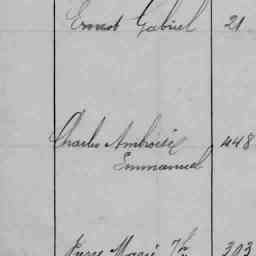 Ernest Gabriel 21
Charles Ambroise 448
Emmanuel
Pierre Marie 303